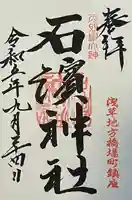 奉拝
浅草地方橋場町鎮座
石濱神社
令和五年九月